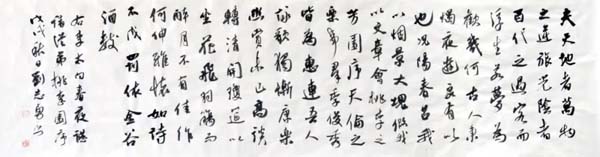 夫天地者萬物
之逆旅光陰者
百代之過客而
浮生若夢為
歡幾何古人秉
燭夜遊良有以
也況陽春召我
以烟景大塊假我
以文章會桃李之
芳園序天倫之
樂事群季俊秀
皆為惠連吾人
詠歌獨慚康樂
幽賞未已高談
轉清開瓊筵以
坐花飛羽觴而
醉月不有佳作
何伸雅懷如詩
不成罰依金谷
酒數
右李太白春夜讌
諸從弟桃李園序
戊戌秋日劉